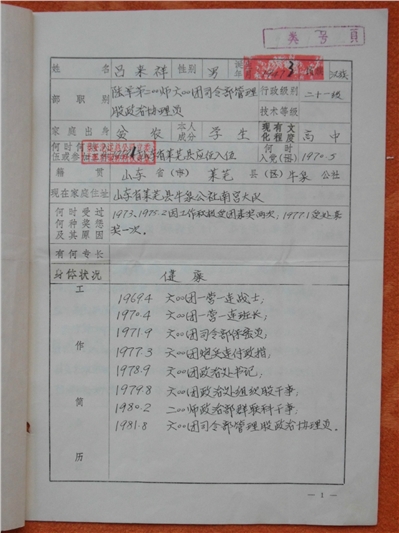 姓名 吕来祥 性别 男 3 汉族
部职别 陆军第二〇〇师六〇〇团司令部管理 行政级别 二十一级
股政治协理员 技术等级
家庭出身 贫农 本人成分 学生 现有文化程度 高中
何时何 省莱芜县应征入伍 何时入党(团) 1970.5
伍或参
籍贯 山东 省(市) 莱芜 县(区) 牛泉 公社
现在家庭住址 山东省莱芜县牛泉公社南宫大队
何时受过何种奖惩及其原因 1973、1975.2因工作积极受团嘉奖两次,1977.1受处嘉
奖一次。
有何专长
身体状况 健康
工作简历
1969.4 六〇〇团一营一连战士;
1970.4 六〇〇团一营一连班长;
1971.9 六〇〇团司令部保密员;
1977.3 六〇〇团炮
1978.9 六〇〇团政治处书记;
1979.8 六〇〇团政治处组织股干事;
1980.2 二〇〇师政治部群联科干事;
1981.8 六〇〇团司令部管理股政治协理员。
— 1 —